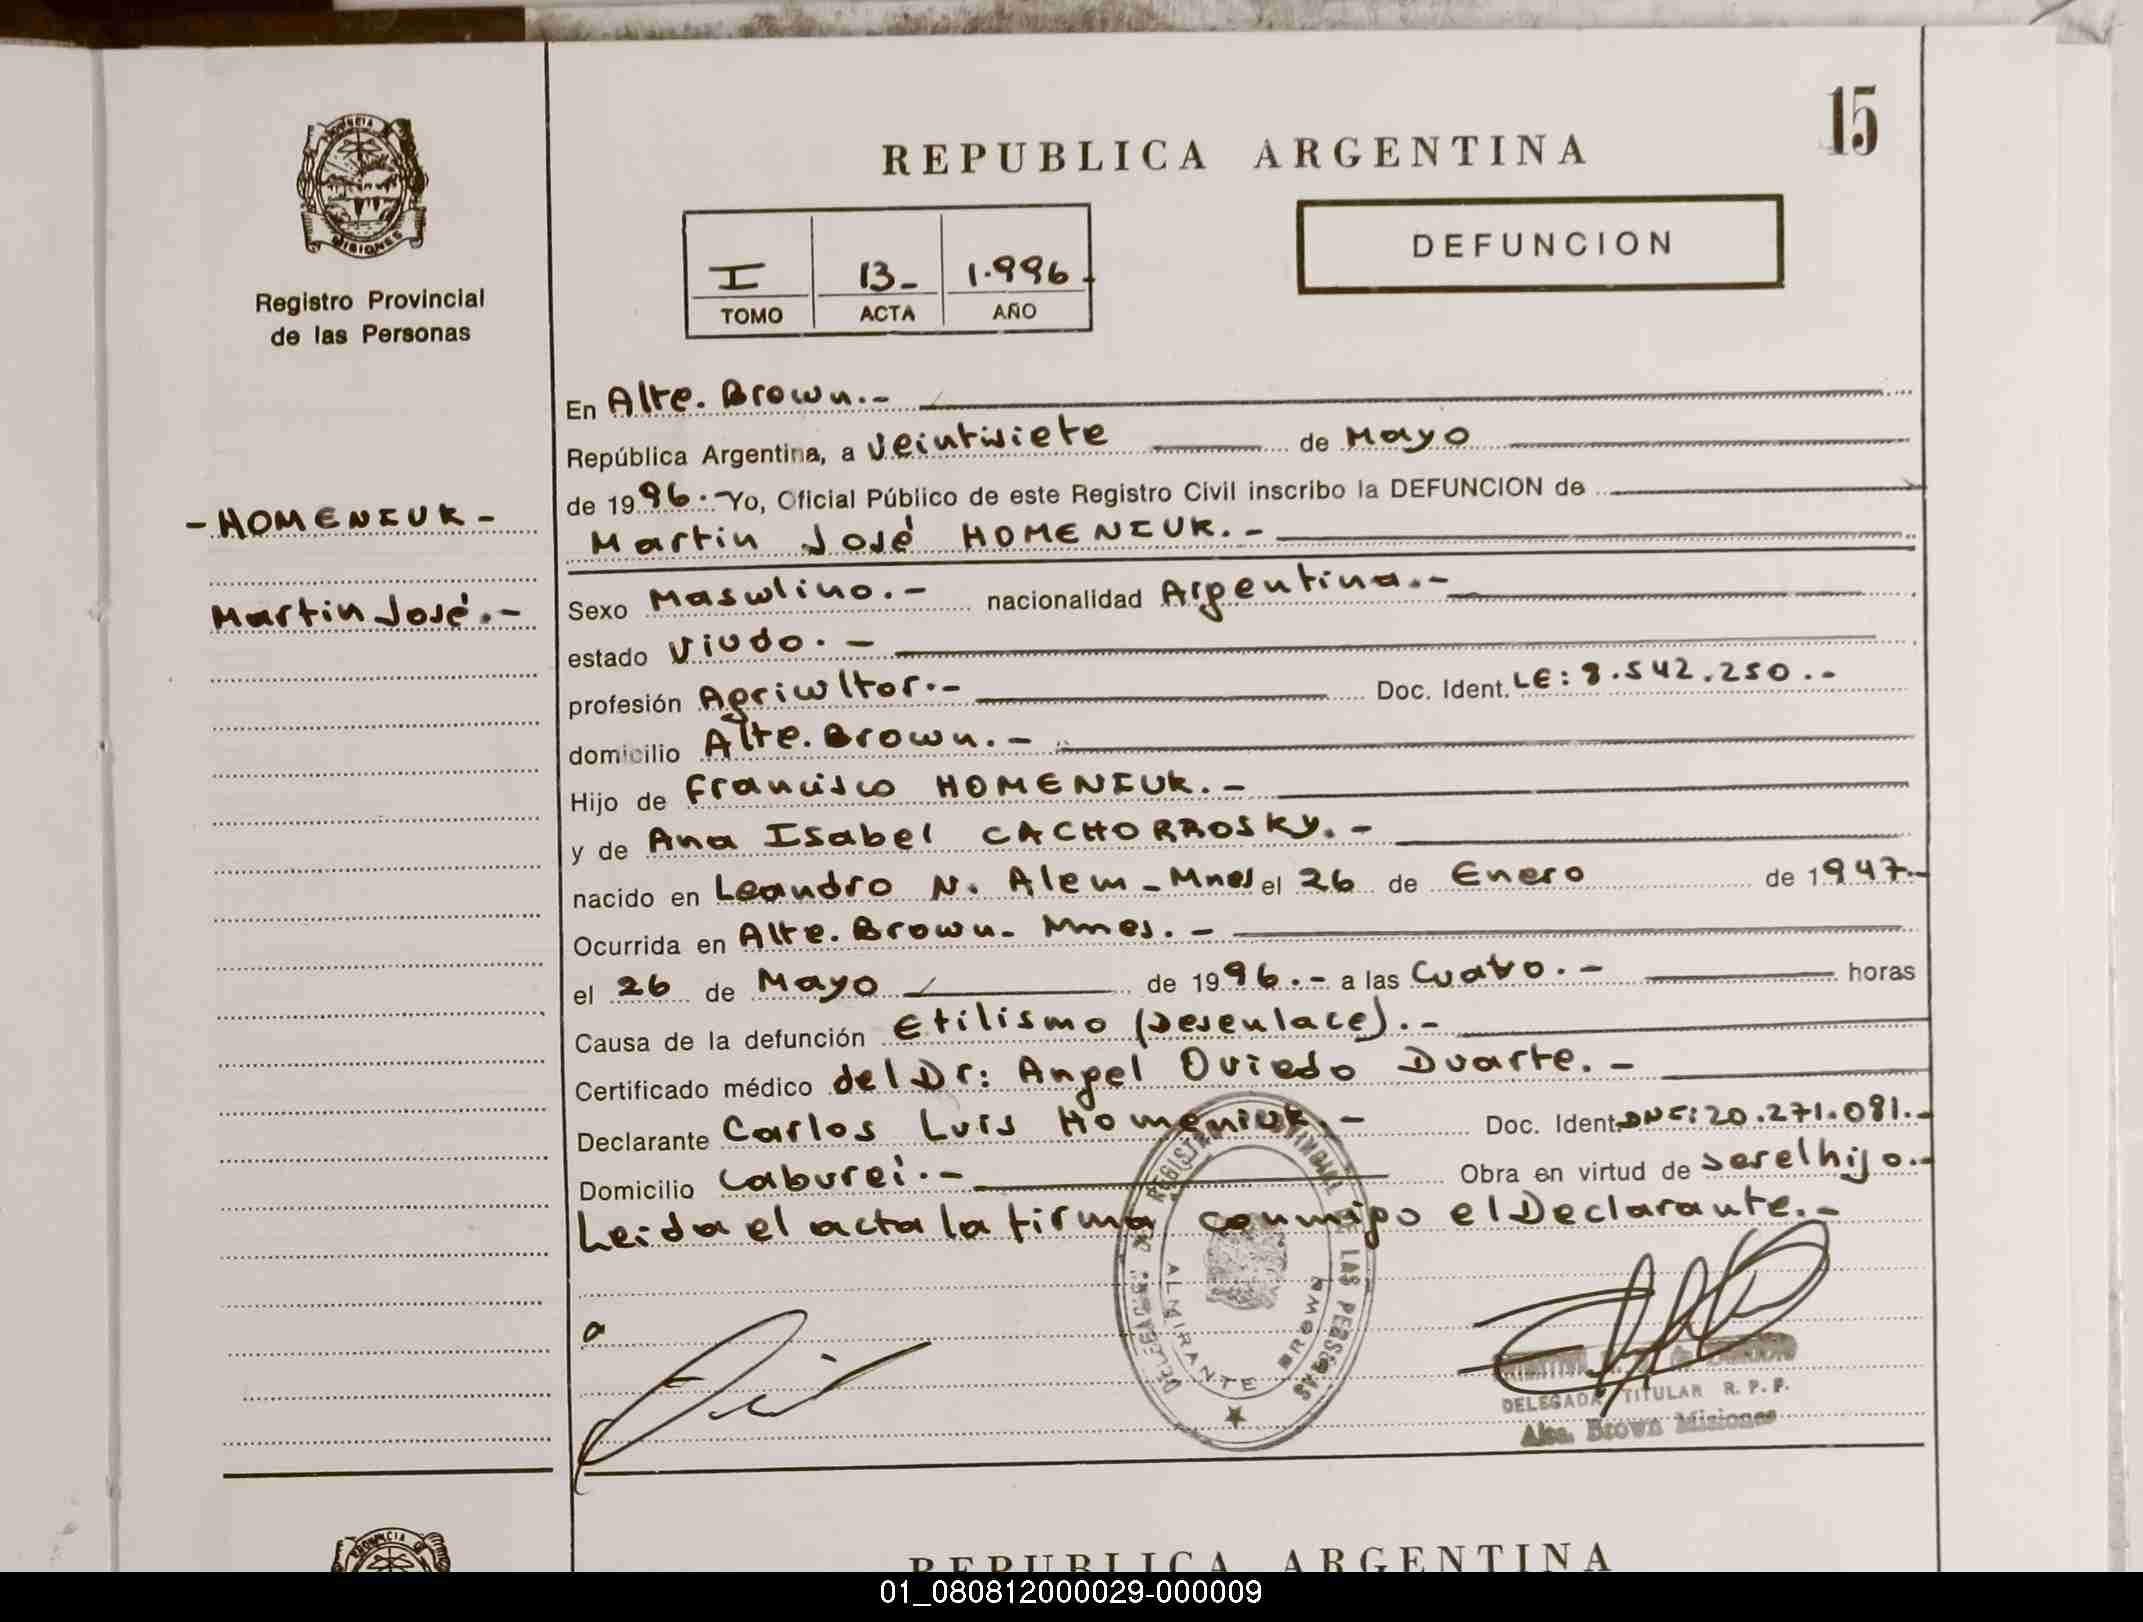 15
REPUBLICA ARGENTINA
PROVINCIA
MISIONES
Registro Provincial
de las Personas
I 13- 1.996.
TOMO ACTA AÑO
DEFUNCION
- HOMENIUK -
Martin José.-
En Alte. Brown.-
República Argentina, a veintisiete de Mayo
de 1996.- Yo, Oficial Público de este Registro Civil inscribo la DEFUNCION de
Martin José HOMENIUK.-
Sexo Masculino.- nacionalidad Argentina.-
estado Viudo.-
profesión Agricultor.- Doc. Ident. LE: 8.542.250.-
domicilio Alte. Brown.-
Hijo de Francisco HOMENIUK.-
y de Ana Isabel CACHORROSKY.-
nacido en Leandro N. Alem - Mnes el 26 de Enero de 1947.-
Ocurrida en Alte. Brown- Mnes.-
el 26 de Mayo de 1996.- a las Cuatro.- horas
Causa de la defunción Etilismo (Desenlace).-
Certificado médico del Dr: Angel Oviedo Duarte.-
Declarante Carlos Luis Homeniuk.- Doc. Ident. DNI: 20.271.081.-
Domicilio Caburei.- Obra en virtud de ser el hijo.-
Leida el acta la firma conmigo el Declarante.-
REGISTRO PROVINCIAL DE LAS PERSONAS
ALMIRANTE BROWN
DELEGADA TITULAR R. P. P.
Alte. Brown Misiones
PROVINCIA
REPUBLICA ARGENTINA
01_080812000029-000009